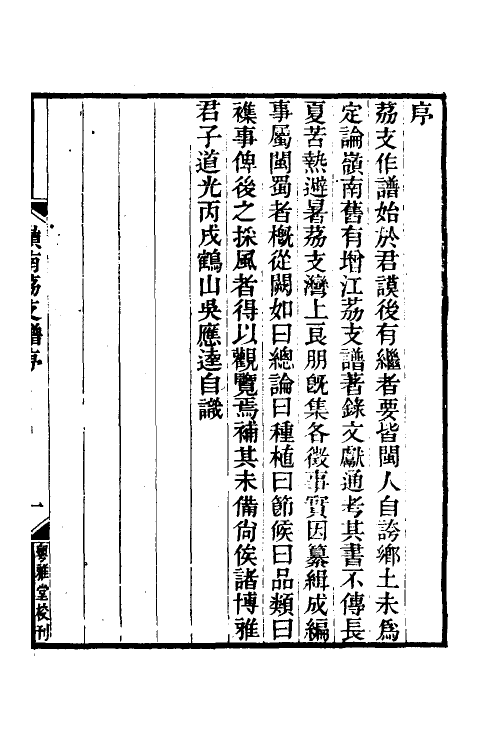 序
荔支作譜始於君謨後有繼者要皆閩人自誇鄉土未爲
定論嶺南舊有增江荔支譜著錄文獻通考其書不傳長
夏苦熱避暑荔支灣上良朋旣集各徵事實因纂緝成編
事屬閩蜀者槪從闕如曰總論曰種植曰節候曰品類曰
襍事俾後之採風者得以觀覽焉補其未備尙俟諸博雅
君子道光丙戌鶴山吳應逵自識
嶺南荔支譜序
一
粤雅堂校刊